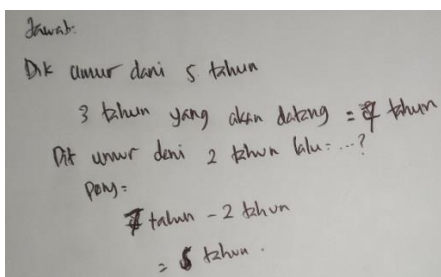 Jawab:
Dik umur dani 5 tahun
3 tahun yang akan datang = 7 tahun
Dit umur deni 2 tahun lalu = ...?
Peny =
7 tahun - 2 tahun
= 5 tahun.